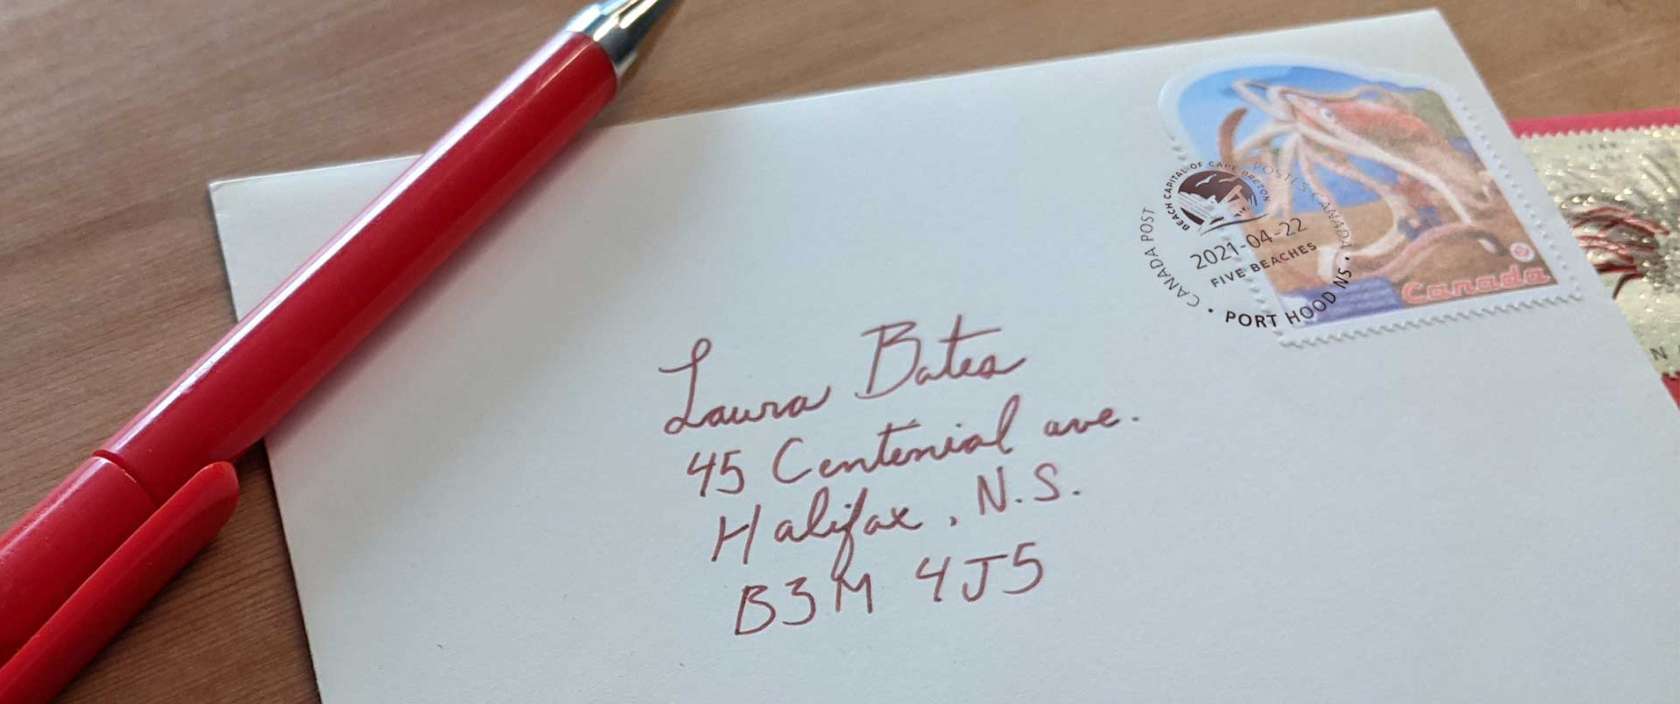 BEACH CAPITAL OF CAPE BRETON
POSTES CANADA
CANADA POST
2021-04-22
FIVE BEACHES
• PORT HOOD NS •
Canada
P
Laura Bates
45 Centenial ave.
Halifax, N.S.
B3M 4J5